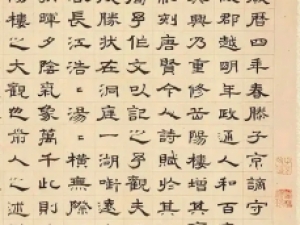 曆四年春滕子京謫守
郡越明年政通人和百
興乃重修岳陽樓增其
刻唐賢今人詩賦於其
予作文以記之予觀夫
勝狀在洞庭一湖銜遠
長江浩浩湯湯橫無際
暉夕陰氣象萬千此則
樓之大觀也前人之述